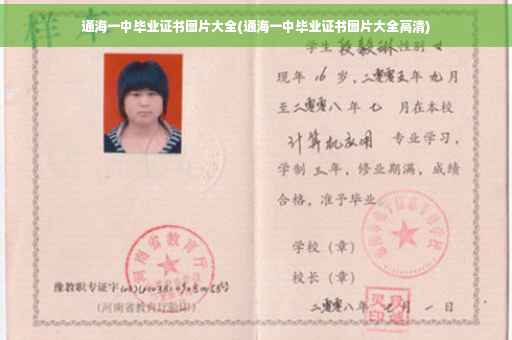 通海一中毕业证书图片大全(通海一中毕业证书图片大全高清)
样本
学生 段毅琳 性别 女
现年 16 岁，二零零五年 九月
至二零零八年 七 月在本校
计算机应用 专业学习，
学制 三 年，修业期满，成绩
合格，准予毕业
学校（章）
校长（章）
二零零八年 月 一 日
河南省教育厅
豫教职专证字
(河南省教育厅验印)